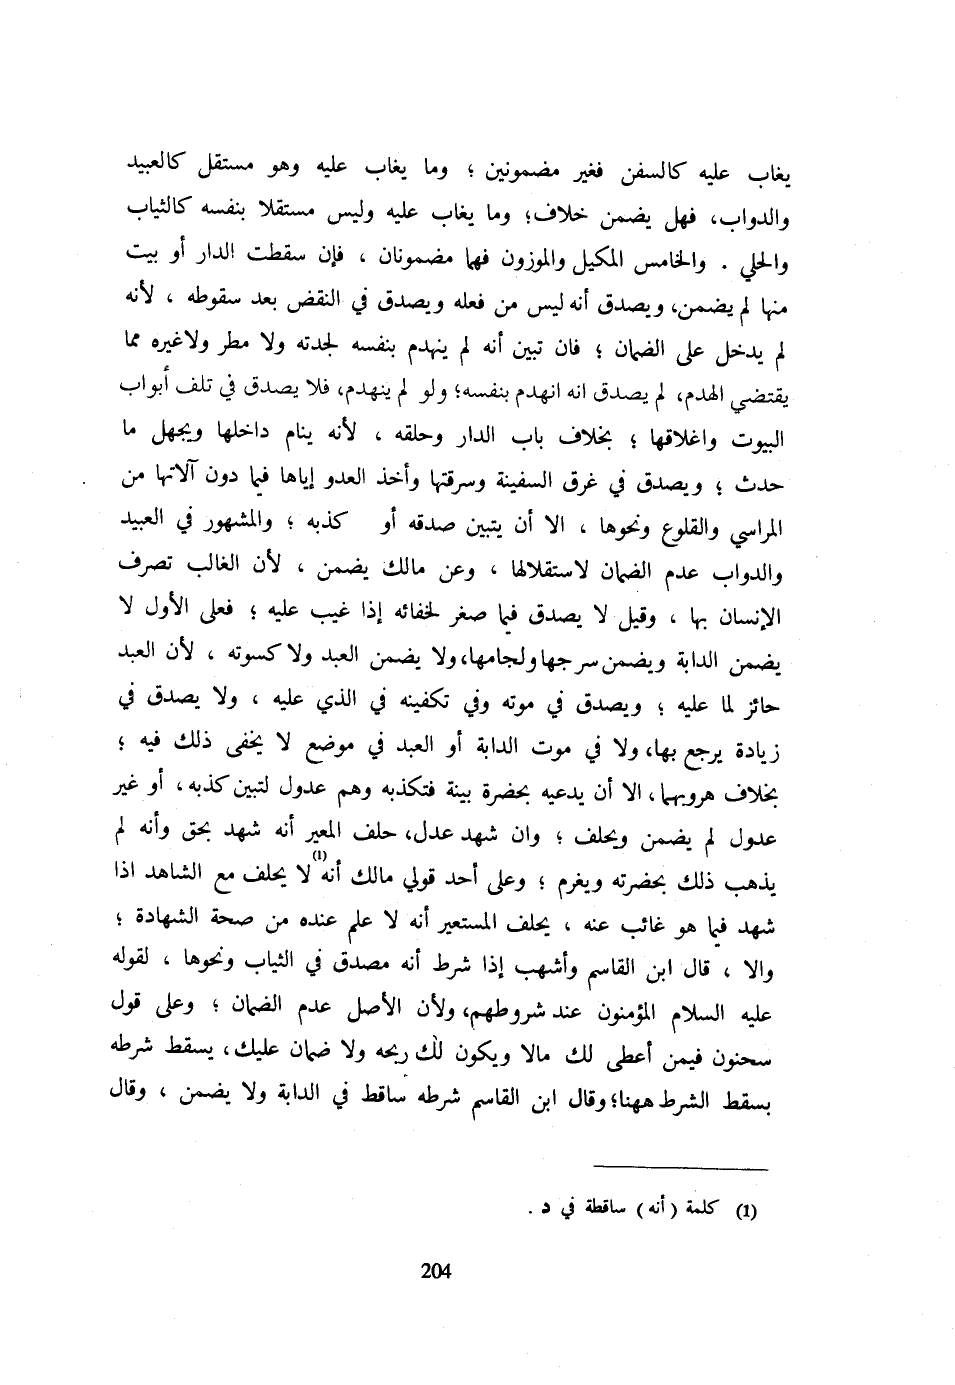 يغاب عليه كالسفن فغير مضمونين ؛ وما يغاب عليه وهو مستقل كالعبيد
والدواب، فهل يضمن خلاف؛ وما يغاب عليه وليس مستقلا بنفسه كالثياب
والحلي . والخامس المكيل والموزون فهما مضمونان ، فإن سقطت الدار أو بيت
منها لم يضمن، ويصدق أنه ليس من فعله ويصدق في النقض بعد سقوطه ، لأنه
لم يدخل على الضمان ؛ فان تبين أنه لم ينهدم بنفسه لجدته ولا مطر ولاغيره مما
يقتضي الهدم، لم يصدق انه انهدم بنفسه؛ ولو لم ينهدم، فلا يصدق في تلف أبواب
البيوت واغلاقها ؛ بخلاف باب الدار وحلقه ، لأنه ينام داخلها ويجهل ما
حدث ؛ ويصدق في غرق السفينة وسرقتها وأخذ العدو إياها فيما دون آلاتها من
المراسي والقلوع ونحوها ، الا أن يتبين صدقه أو كذبه ؛ والمشهور في العبيد
والدواب عدم الضمان لاستقلالها ، وعن مالك يضمن ، لأن الغالب تصرف
الإنسان بها ، وقيل لا يصدق فيما صغر لخفائه إذا غيب عليه ؛ فعلى الأول لا
يضمن الدابة ويضمن سرجها ولجامها، ولا يضمن العبد ولا كسوته ، لأن العبد
حائز لما عليه ؛ ويصدق في موته وفي تكفينه في الذي عليه ، ولا يصدق في
زيادة يرجع بها، ولا في موت الدابة أو العبد في موضع لا يخفى ذلك فيه ؛
بخلاف هروبهما، الا أن يدعيه بحضرة بينة فتكذبه وهم عدول لتبين كذبه، أو غير
عدول لم يضمن ويحلف ؛ وان شهد عدل، حلف المعير أنه شهد بحق وأنه لم
يذهب ذلك بحضرته ويغرم ؛ وعلى أحد قولي مالك أنه(1) لا يحلف مع الشاهد اذا
شهد فيما هو غائب عنه ، يحلف المستعير أنه لا علم عنده من صحة الشهادة ؛
والا ، قال ابن القاسم وأشهب إذا شرط أنه مصدق في الثياب ونحوها ، لقوله
عليه السلام المؤمنون عند شروطهم، ولأن الأصل عدم الضمان ؛ وعلى قول
سحنون فيمن أعطى لك مالا ويكون لك ربحه ولا ضمان عليك، يسقط شرطه
بسقط الشرط ههنا؛ وقال ابن القاسم شرطه ساقط في الدابة ولا يضمن ، وقال
(1) كلمة (أنه) ساقطة في د .
204